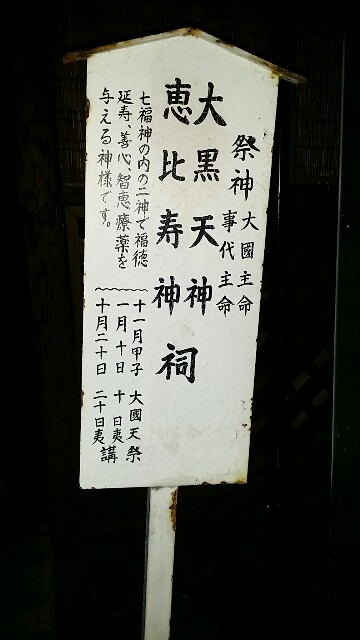 祭神 大國主命
事代主命
大黒天神
恵比寿神祠
七福神の内の二神で福徳
延寿、善心、智恵療薬を
与える神様です。
十一月甲子 大國天祭
一月十日 十日夷
十月二十日 二十日夷講